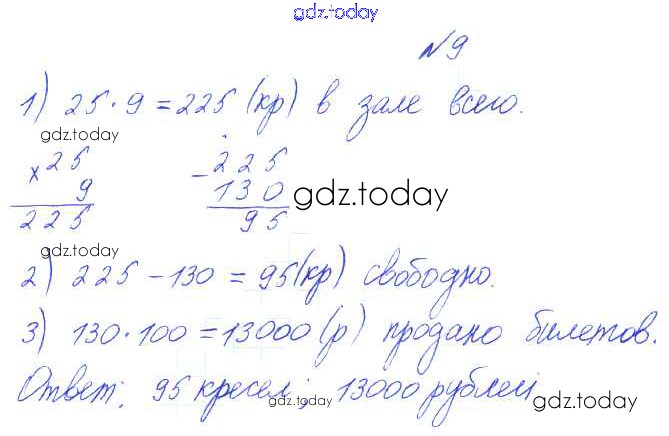 gdz.today
№9
1) 25·9=225 (кр) в зале всего.
gdz.today
× 25 - 225
9 130 gdz.today
225 95
gdz.today
2) 225-130=95(кр) свободно.
3) 130·100=13000(р) продано билетов.
Ответ: 95 кресел; 13000 рублей
gdz.today gdz.today